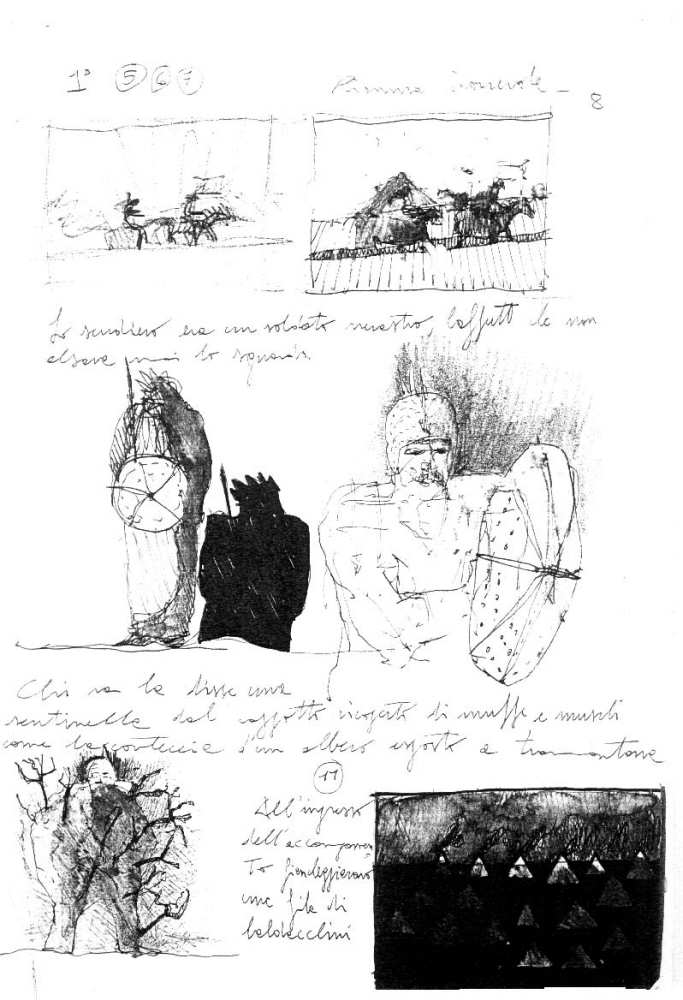 1° 5 6 7
Pianura
8
Lo scudiero era un soldato nerastro, baffuto che non
alzava mai lo sguardo
Chi va là disse una
sentinella dal cappotto ricoperto di muffe e muschi
come la corteccia d'un albero esposto a tramontana
11
All'ingresso
dell'accampamen
to fiancheggiarono
una fila di
baldacchini